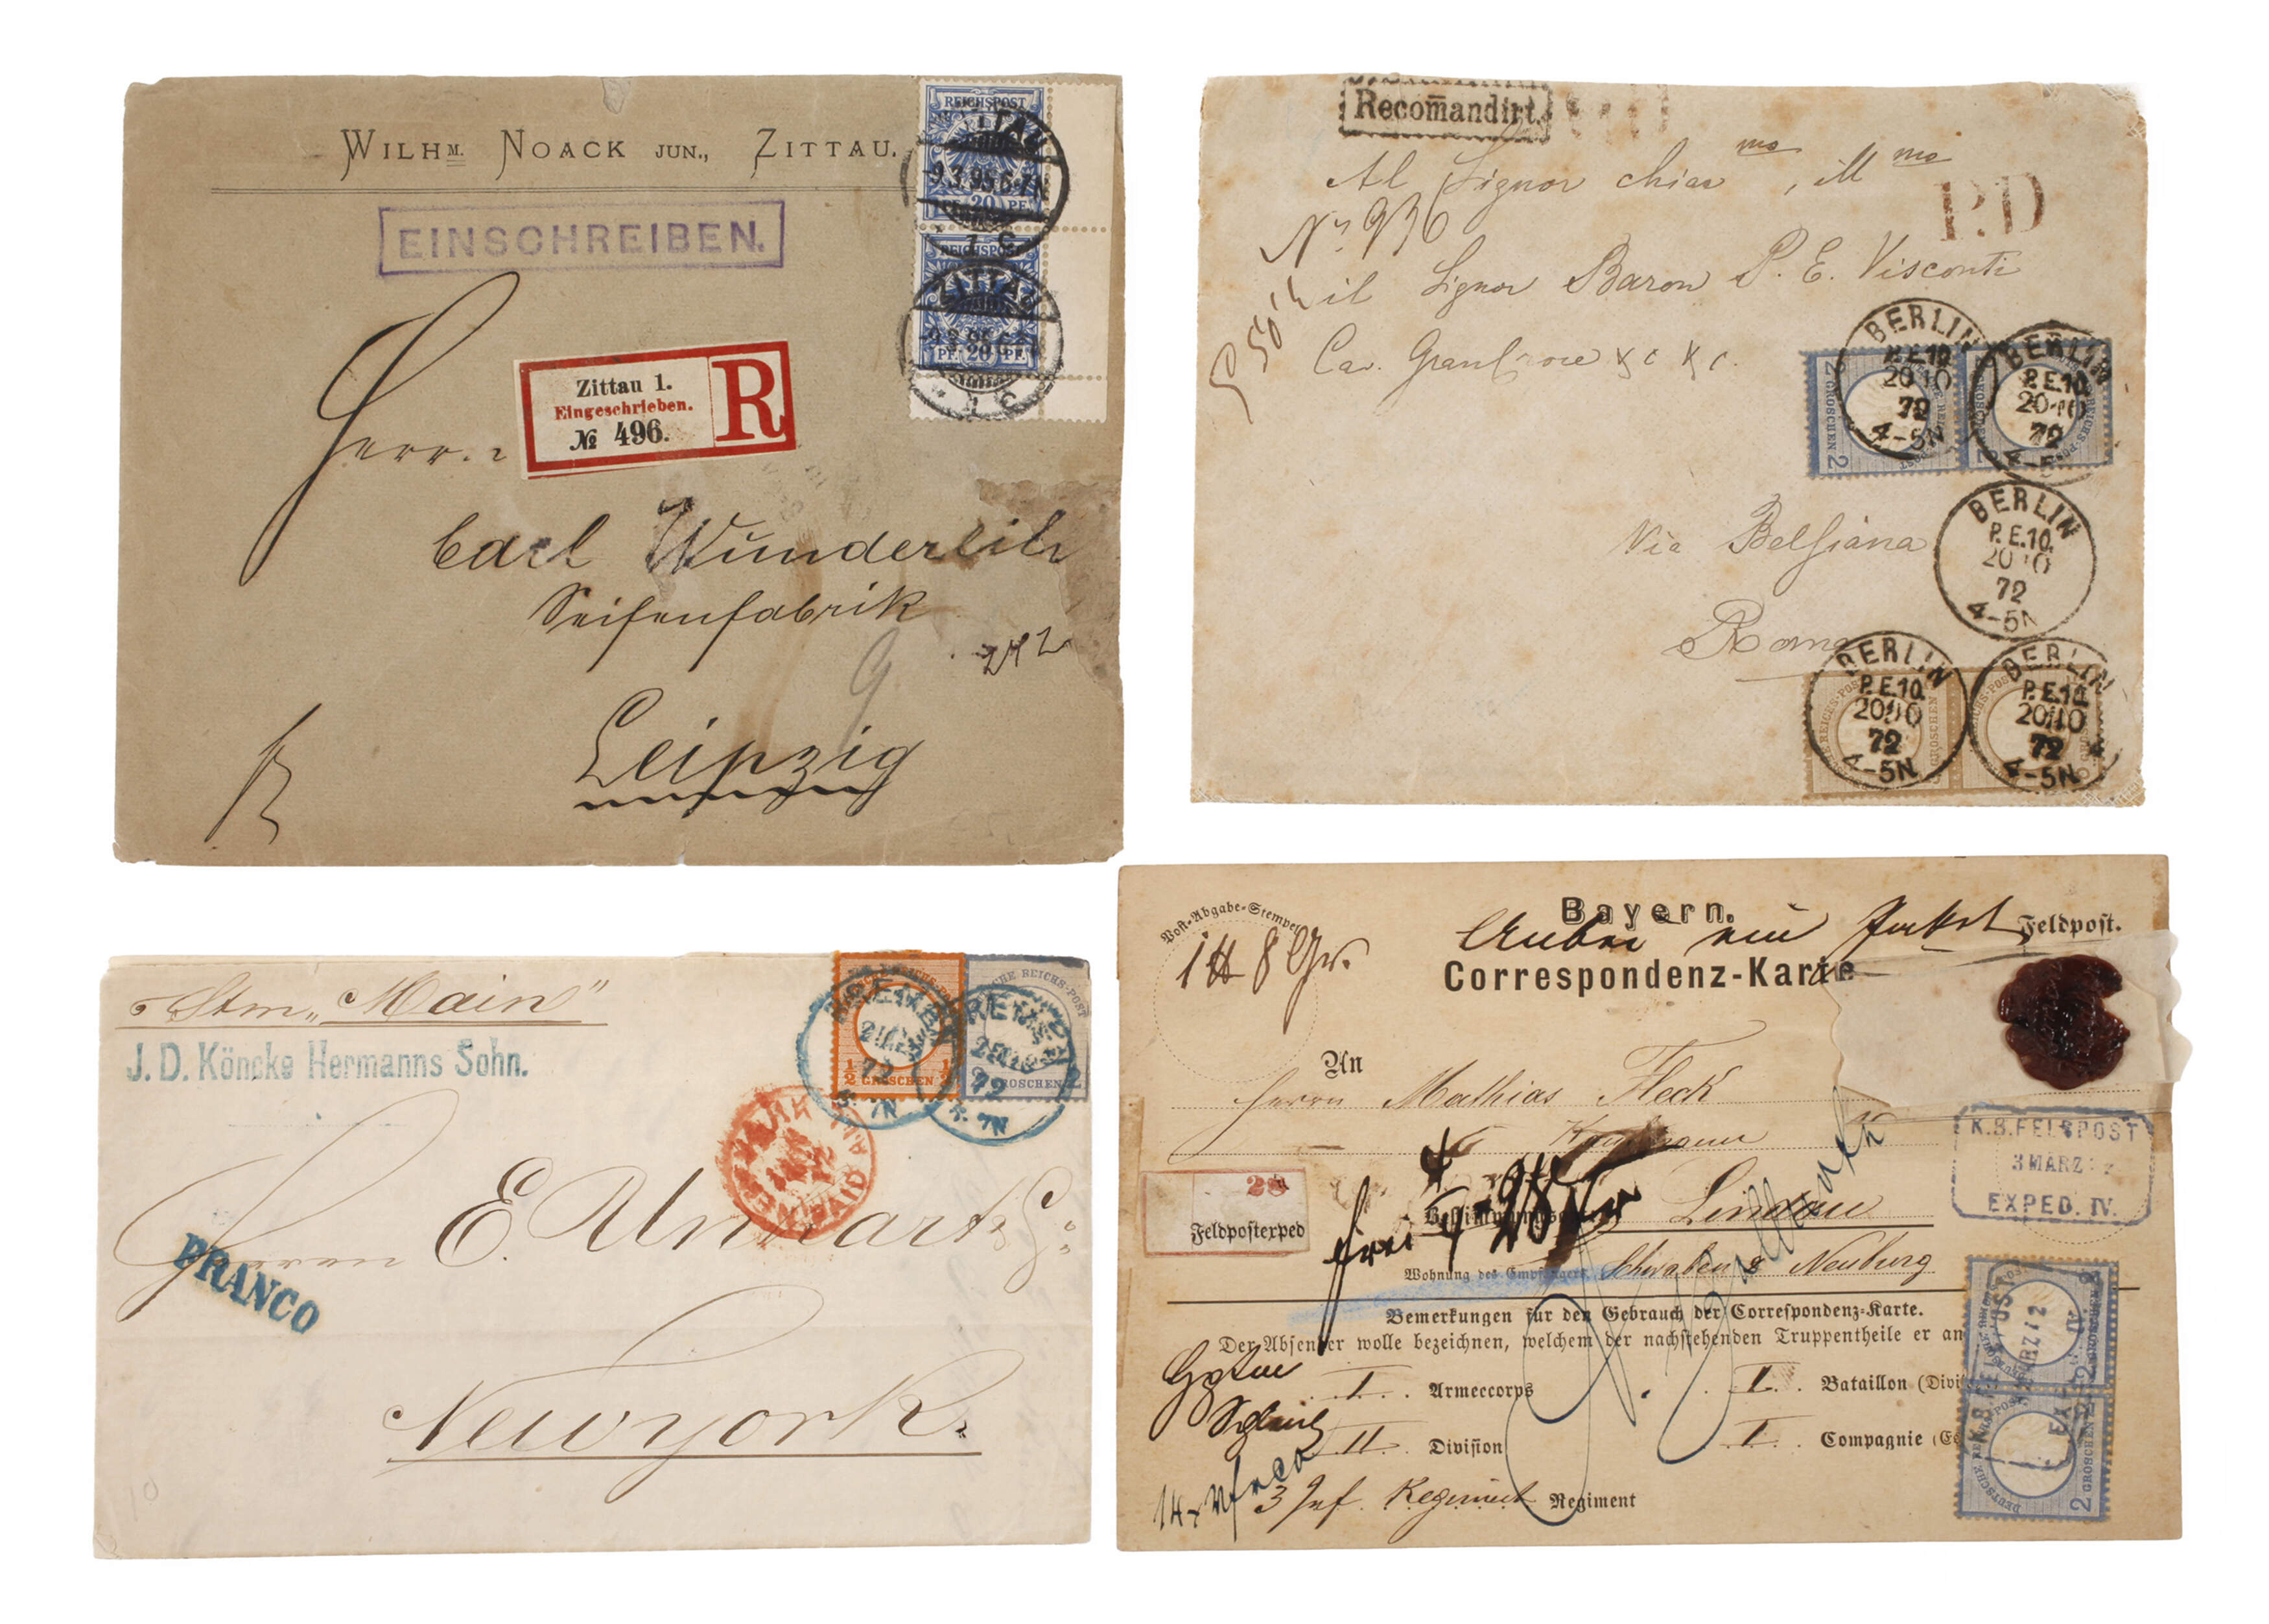 WILHM. NOACK JUN., ZITTAU.
EINSCHREIBEN.
REICHSPOST
9.3.95 6-7N
PF. 20 PF.
1 C
REICHSPOST
ZITTAU
PF. 20 PF.
C
Zittau 1.
Eingeschrieben.
№ 496.
R
Herrn
Carl Wunderlich
Seifenfabrik
9
Leipzig
Recom̄andirt.
Al Signor
P.D
No 936
il Signor Baron P. E. Visconti
Cav.
BERLIN
P.E.10.
20 10
72
4-5N
BERLIN
P.E.10.
20 10
72
2 GROSCHEN 2
Via Belsiana
BERLIN
P.E.10.
20 10
72
4-5N
Roma
BERLIN
P.E.10.
20 10
72
4-5N
BERLIN
P.E.10.
20 10
72
4-5N
Stm „Main"
J. D. Köncke Hermanns Sohn.
BREMEN
72
7N
½ GROSCHEN ½
BREMEN
72
7N
GROSCHEN 2
PAID ALL
Herrn E. Co
FRANCO
Newyork.
Bayern.
Feldpost.
Post-Abgabe-Stempel
Correspondenz-Karte
An
Herrn Mathias Fleck
Kaufmann
K.B.FELDPOST
3 MÄRZ
EXPED. IV.
28
Feldpostexped
frei
Lindau
Wohnung des Empfängers Schwaben & Neuburg
Bemerkungen für den Gebrauch der Correspondenz-Karte.
Der Absender wolle bezeichnen, welchem der nachstehenden Truppentheile er an
I. Armeecorps
I. Bataillon (Divi
II Division
I. Compagnie (Es
3 Inf. Regiment Regiment
2 GROSCHEN 2
DEUTSCHE REICHS-POST
2 GROSCHEN 2